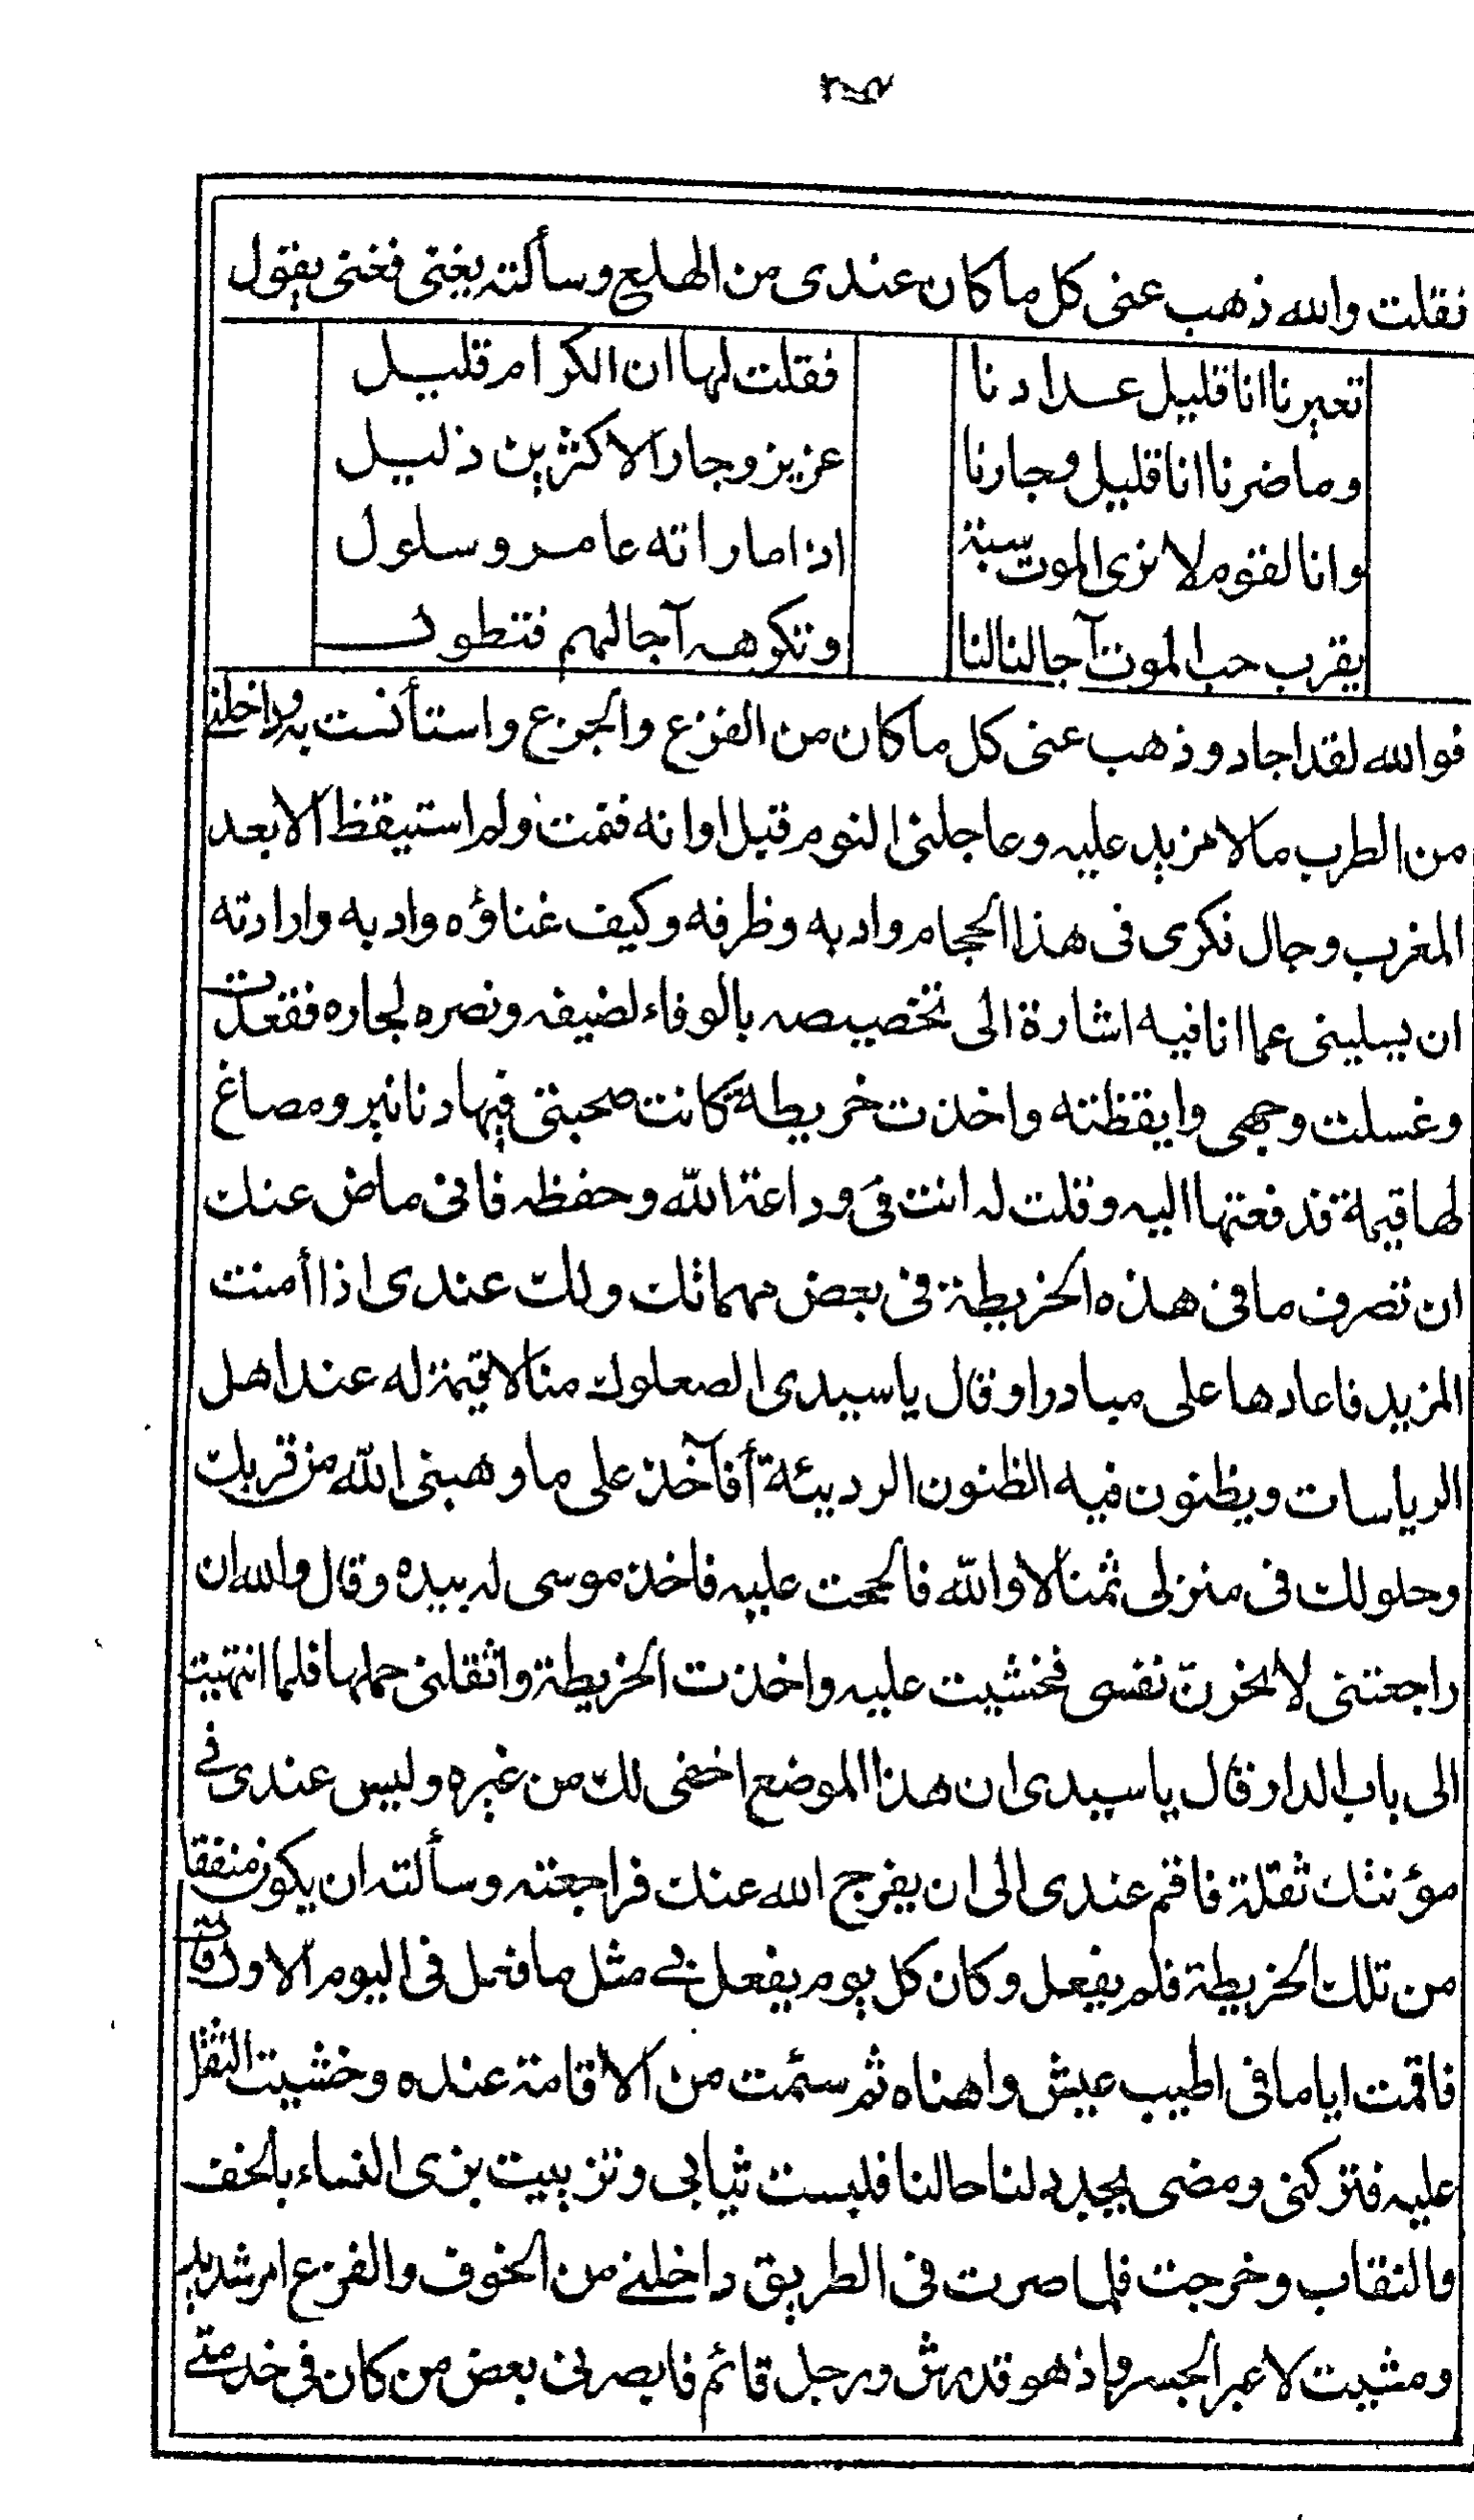 فقلت والله ذهب عنى كل ما كان عندى من الهلع وسألته يغنى فغنى يقول
تعيرنا انا قليل عدادنا فقلت لها ان الكرام قليل
وما ضرنا انا قليل وجارنا عزيز وجار الاكثرين ذليل
وانا لقوم لا نرى الموت سبة اذا ما راته عامر وسلول
يقرب حب الموت آجالنا لنا وتكرهه آجالهم فتطول
فوالله لقد اجاد وذهب عنى كل ما كان من الفزع والجزع واستأنست به وداخلنے
من الطرب ما لا مزيد عليه وعاجلنى النوم قبل اوانه فقمت ولم استيقظ الا بعد
المغرب وجال فكرى فى هذا الحجام وادبه وظرفه وكيف غناؤه وادبه وارادته
ان يسلينى عما انا فيه اشارة الى تخصيصه بالوفاء لضيفه ونصره لجاره فقعدت
وغسلت وجهى وايقظته واخذت خريطة كانت صحبتى فيها دنانير ومصاغ
لها قيمة قد فعتها اليه وقلت له انت فى وداعة الله وحفظه فانى ماض عنك
ان تصرف ما فى هذه الخريطة فى بعض مهماتك ولك عندى اذا أمنت
المزيد فاعادها على مبادرا وقال يا سيدى الصعلوك منا لا قيمة له عند اهل
الرياسات ويظنون فيه الظنون الرديئة أفآخذ على ما وهبنى الله من قربك
وحلولك فى منزلى ثمنا لا والله فالححت عليه فاخذ موسى له بيده وقال والله ان
راجعتنى لانحرنّ نفسى فخشيت عليه واخذت الخريطة واثقلنى حملها فلما انتهيت
الى باب الدار قال يا سيدى ان هذا الموضع اخفى لك من غيره وليس عندى فے
مؤنتك ثقلة فاقم عندى الى ان يفرج الله عنك فراجعته وسألته ان يكون منفقا
من تلك الخريطة فلم يفعل وكان كل يوم يفعل بے مثل ما فعل فى اليوم الاول قال
فاقمت اياما فى اطيب عيش واهناه ثم سئمت من الاقامة عنده وخشيت الثقل
عليه فتركنى ومضى يجدد لنا حالنا فلبست ثيابى وتزييت بزى النساء بالخف
والنقاب وخرجت فلما صرت فى الطريق داخلنے من الخوف والفزع امر شديد
ومشيت لاعبر الجسر واذ هو قد رش ورجل قائم فابصرنى بعض من كان فى خدمتے